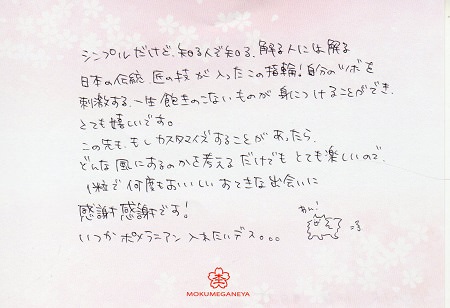 シンプルだけど、知る人ぞ知る、解る人には解る
日本の伝統 匠の技が入ったこの指輪!自分のツボを
刺激する、一生飽きのこないものが身につけることができ、
とても嬉しいです。
この先も、もしカスタマイズすることがあったら、
どんな風にするのかを考えるだけでもとても楽しいので、
1粒で何度もおいしい すてきな出会いに
感謝感謝です!
いつかポメラニアン入れたいデス。。。
わん!
杢
MOKUMEGANEYA